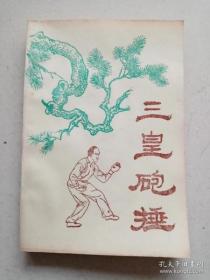 三皇砲捶
孔夫子旧书网